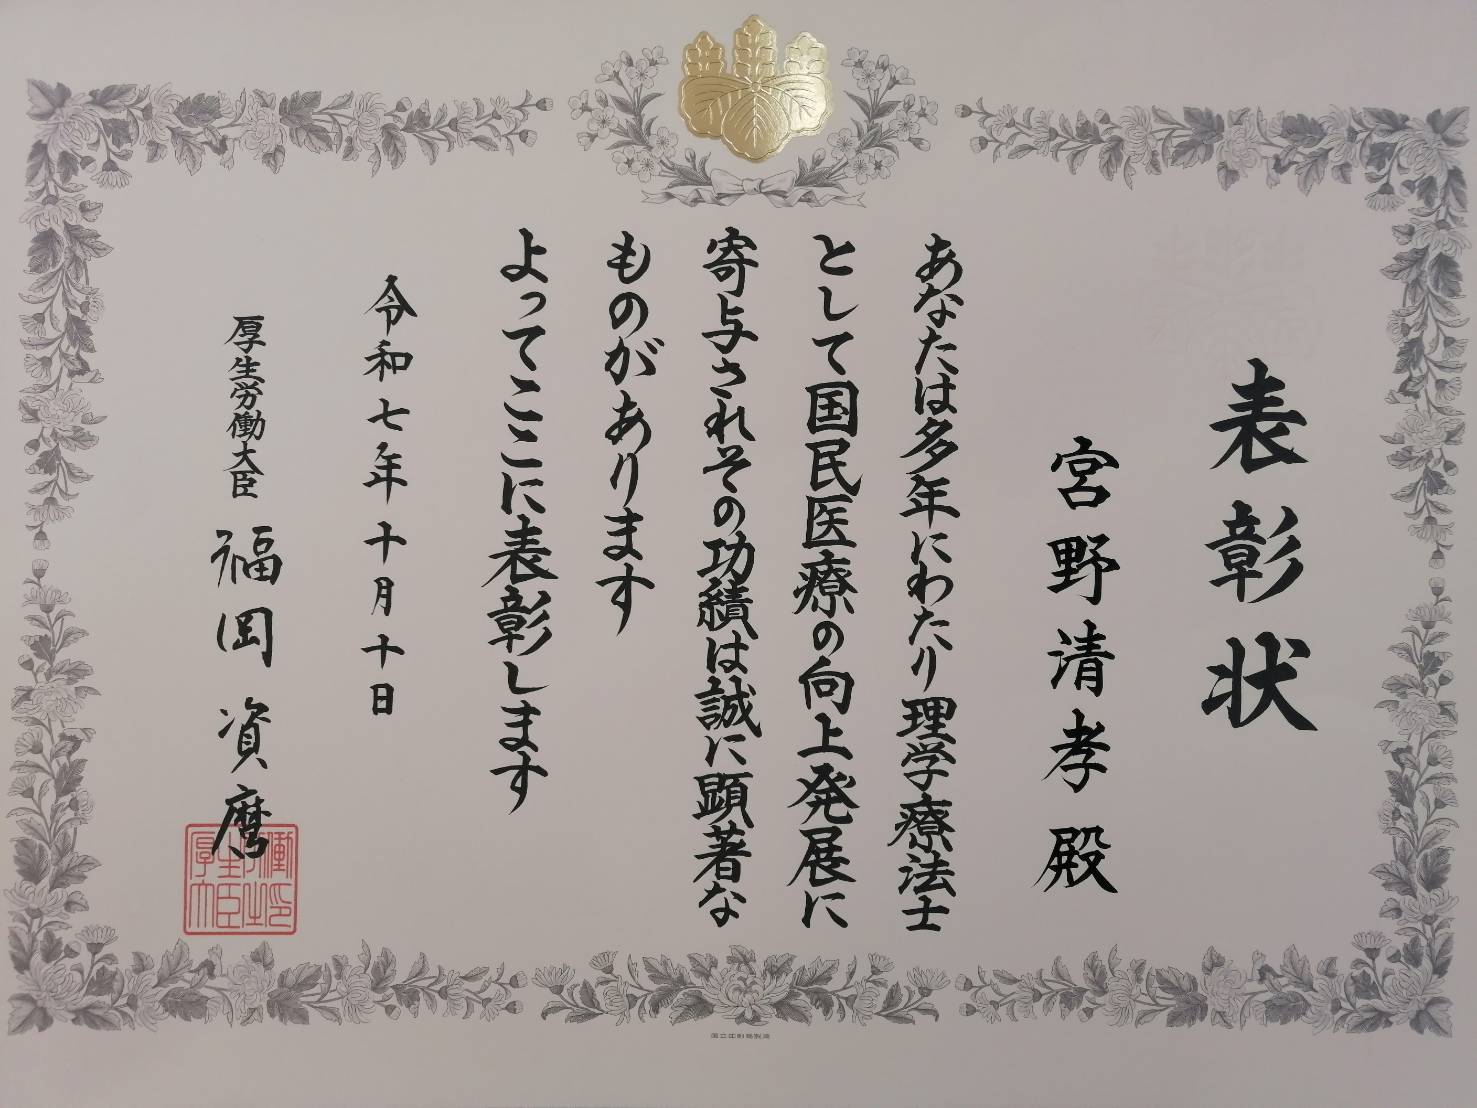 表彰状
宮野清孝殿
あなたは多年にわたり理学療法士
として国民医療の向上発展に
寄与されその功績は誠に顕著な
ものがあります
よってここに表彰します
令和七年十月十日
厚生労働大臣 福岡資麿
国立印刷局製造